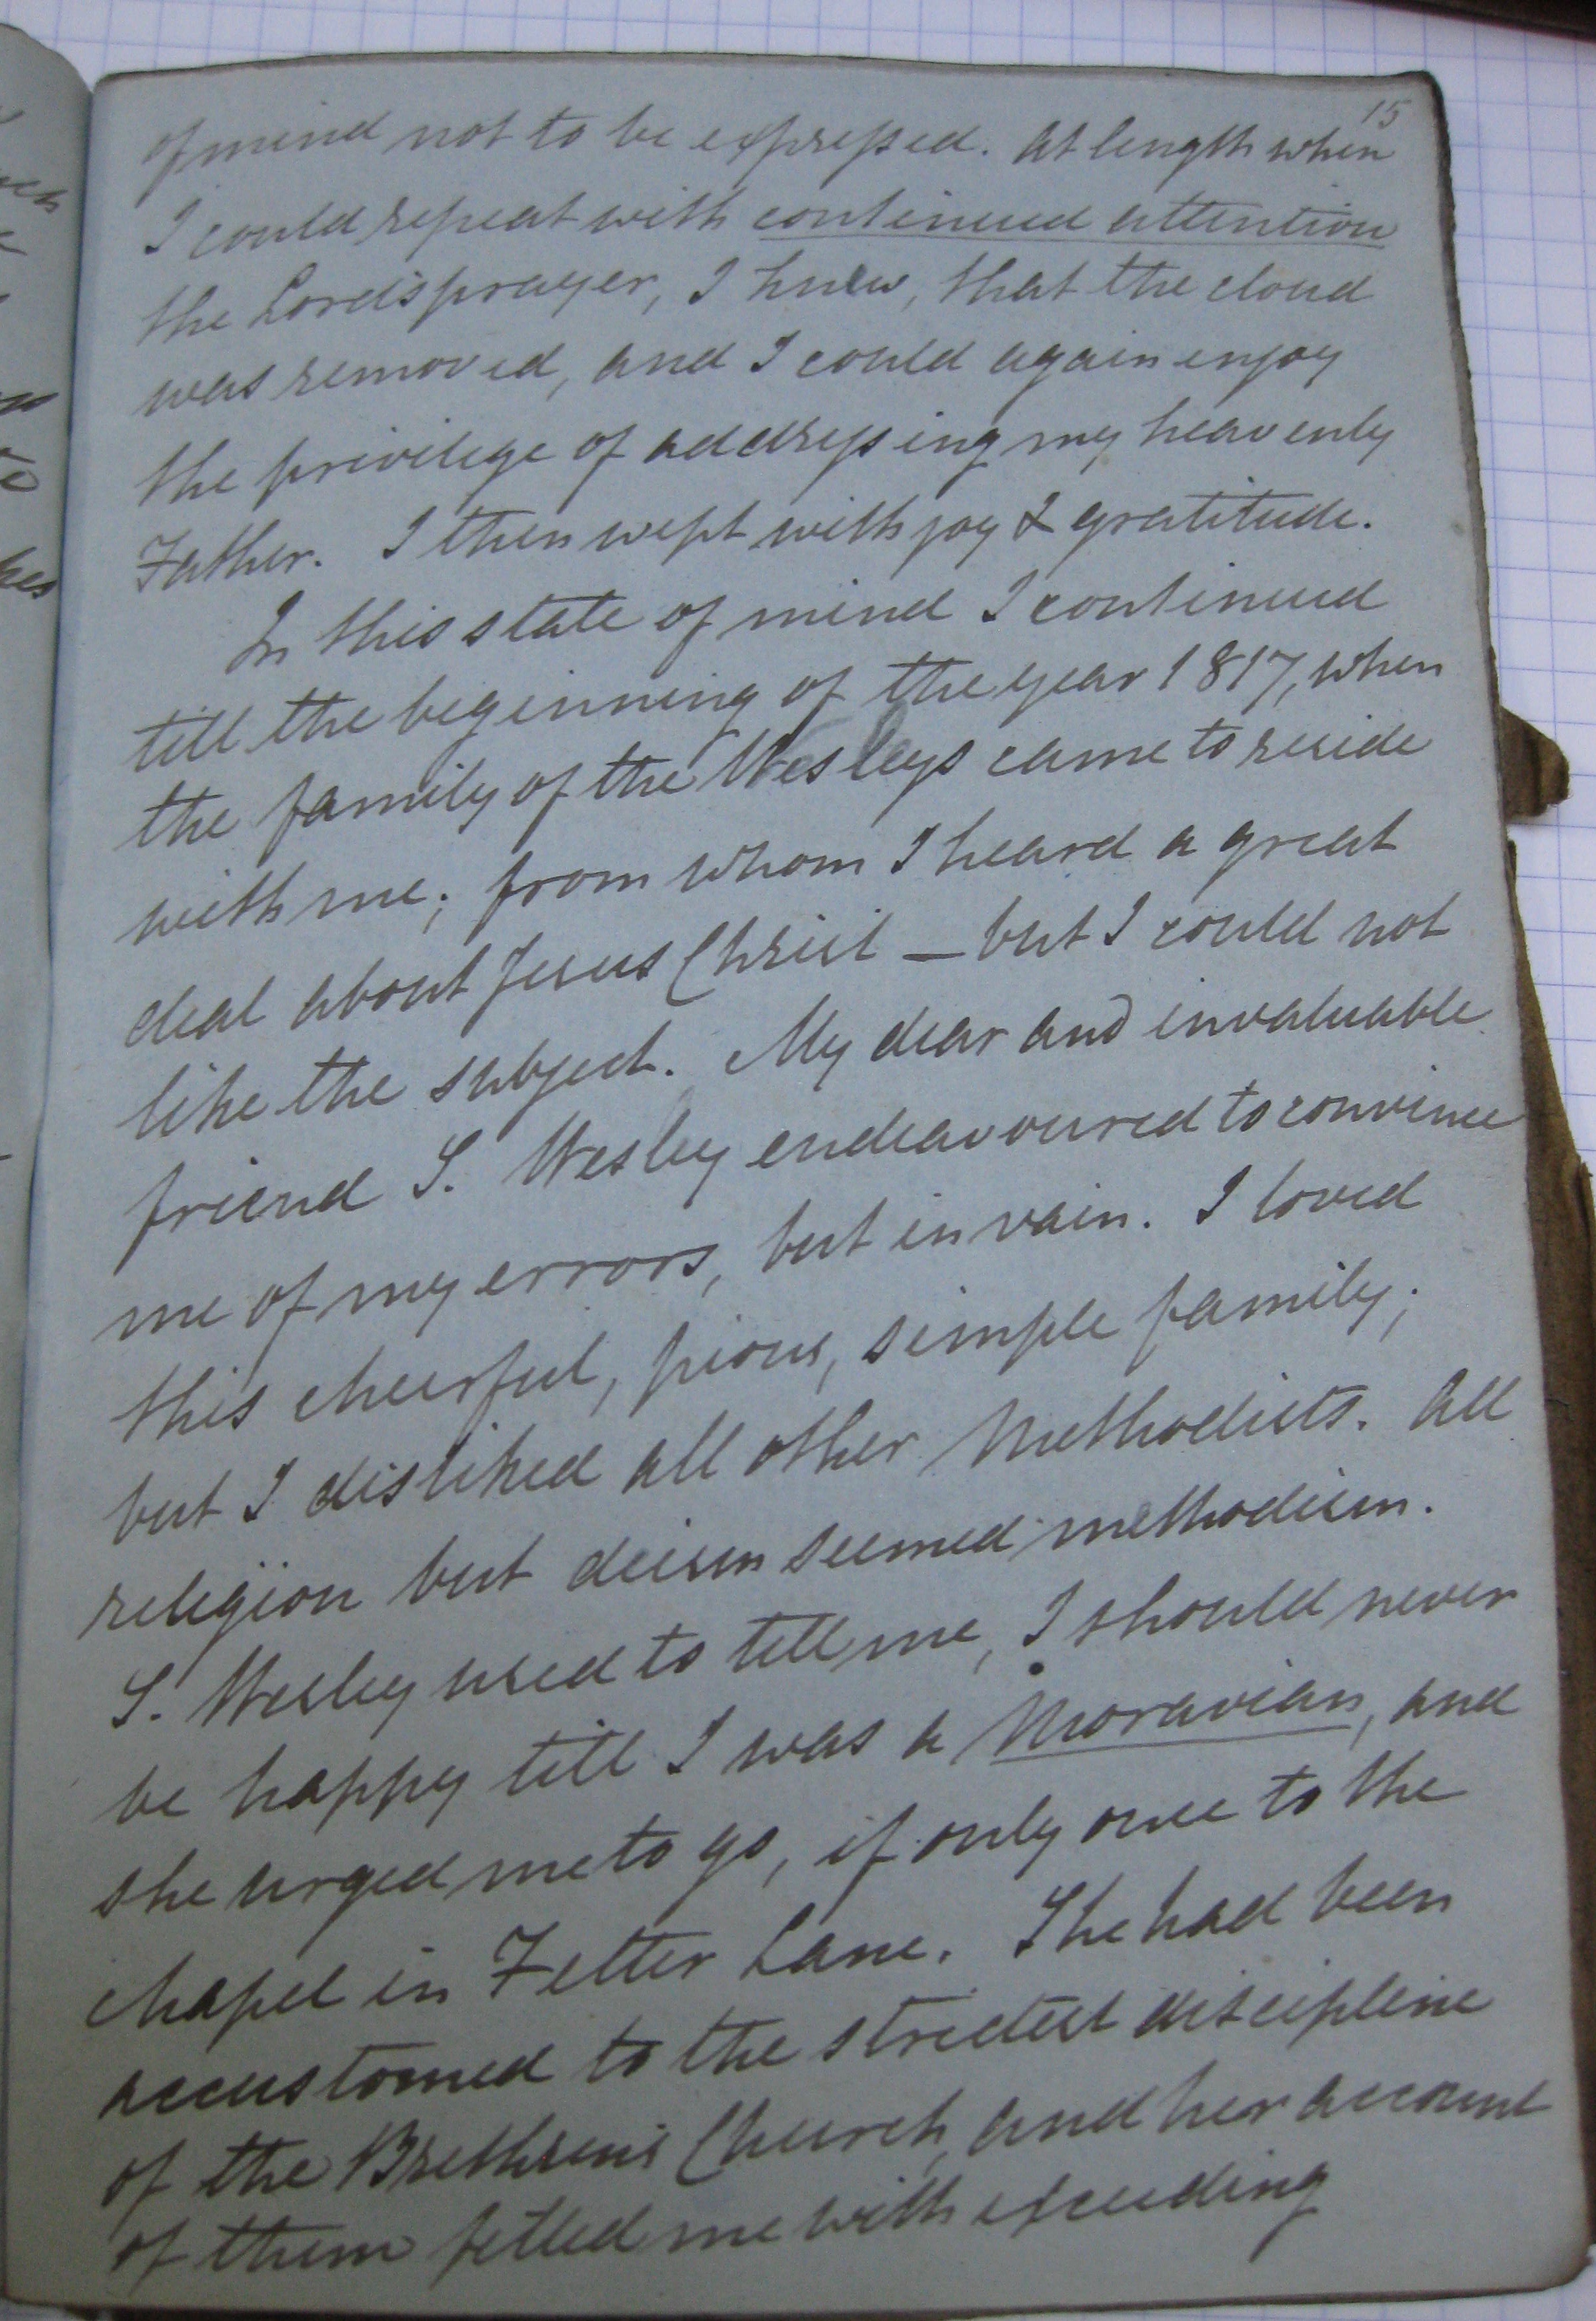 15
of mind not to be expressed. At length when
I could repeat with continued attention
the Lord's prayer, I knew, that the cloud
was removed, and I could again enjoy
the privilege of addressing my heavenly
Father. I then wept with joy & gratitude.
In this state of mind I continued
till the beginning of the year 1817, when
the family of the Wesleys came to reside
with me; from whom I heard a great
deal about Jesus Christ — but I could not
like the subject. My dear and invaluable
friend S. Wesley endeavoured to convince
me of my errors, but in vain. I loved
this cheerful, pious, simple family;
but I disliked all other Methodists. All
religion but deism seemed methodism.
S. Wesley used to tell me, I should never
be happy till I was a Moravian, and
she urged me to go, if only once to the
chapel in Fetter Lane. She had been
accustomed to the strictest discipline
of the Brethren's Church, and her account
of them filled me with exceeding